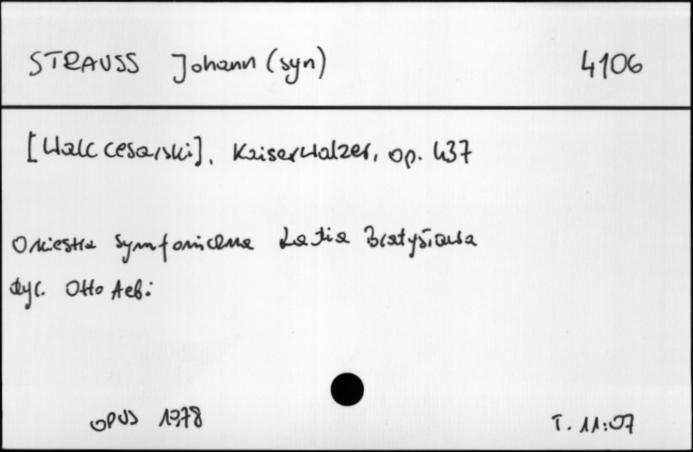 STRAUSS Johann (syn) 4106
[Walc cesarski], Kaiserwalzer, op. 437
Orkiestra Symfoniczna Radia Bratysława
dyr. Otto Aebi
OPUS 1978 T. 11:07